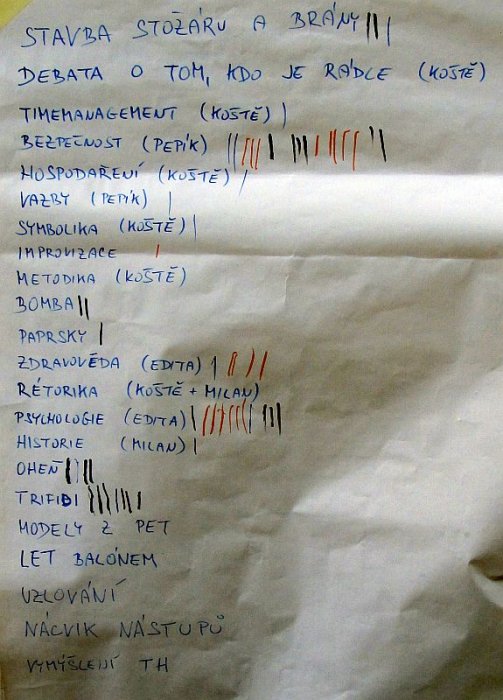 STAVBA STOŽÁRU A BRÁNY
DEBATA O TOM, KDO JE RÁDLE (KOŠTĚ)
TIMEMANAGEMENT (KOŠTĚ)
BEZPEČNOST (PEPÍK)
HOSPODAŘENÍ (KOŠTĚ)
VAZBY (PEPÍK)
SYMBOLIKA (KOŠTĚ)
IMPROVIZACE
METODIKA (KOŠTĚ)
BOMBA
PAPRSKY
ZDRAVOVĚDA (EDITA)
RÉTORIKA (KOŠTĚ + MILAN)
PSYCHOLOGIE (EDITA)
HISTORIE (MILAN)
OHEŇ
TRIFIDI
MODELY Z PET
LET BALÓNEM
UZLOVÁNÍ
NÁCVIK NÁSTUPŮ
VYMÝŠLENÍ TH